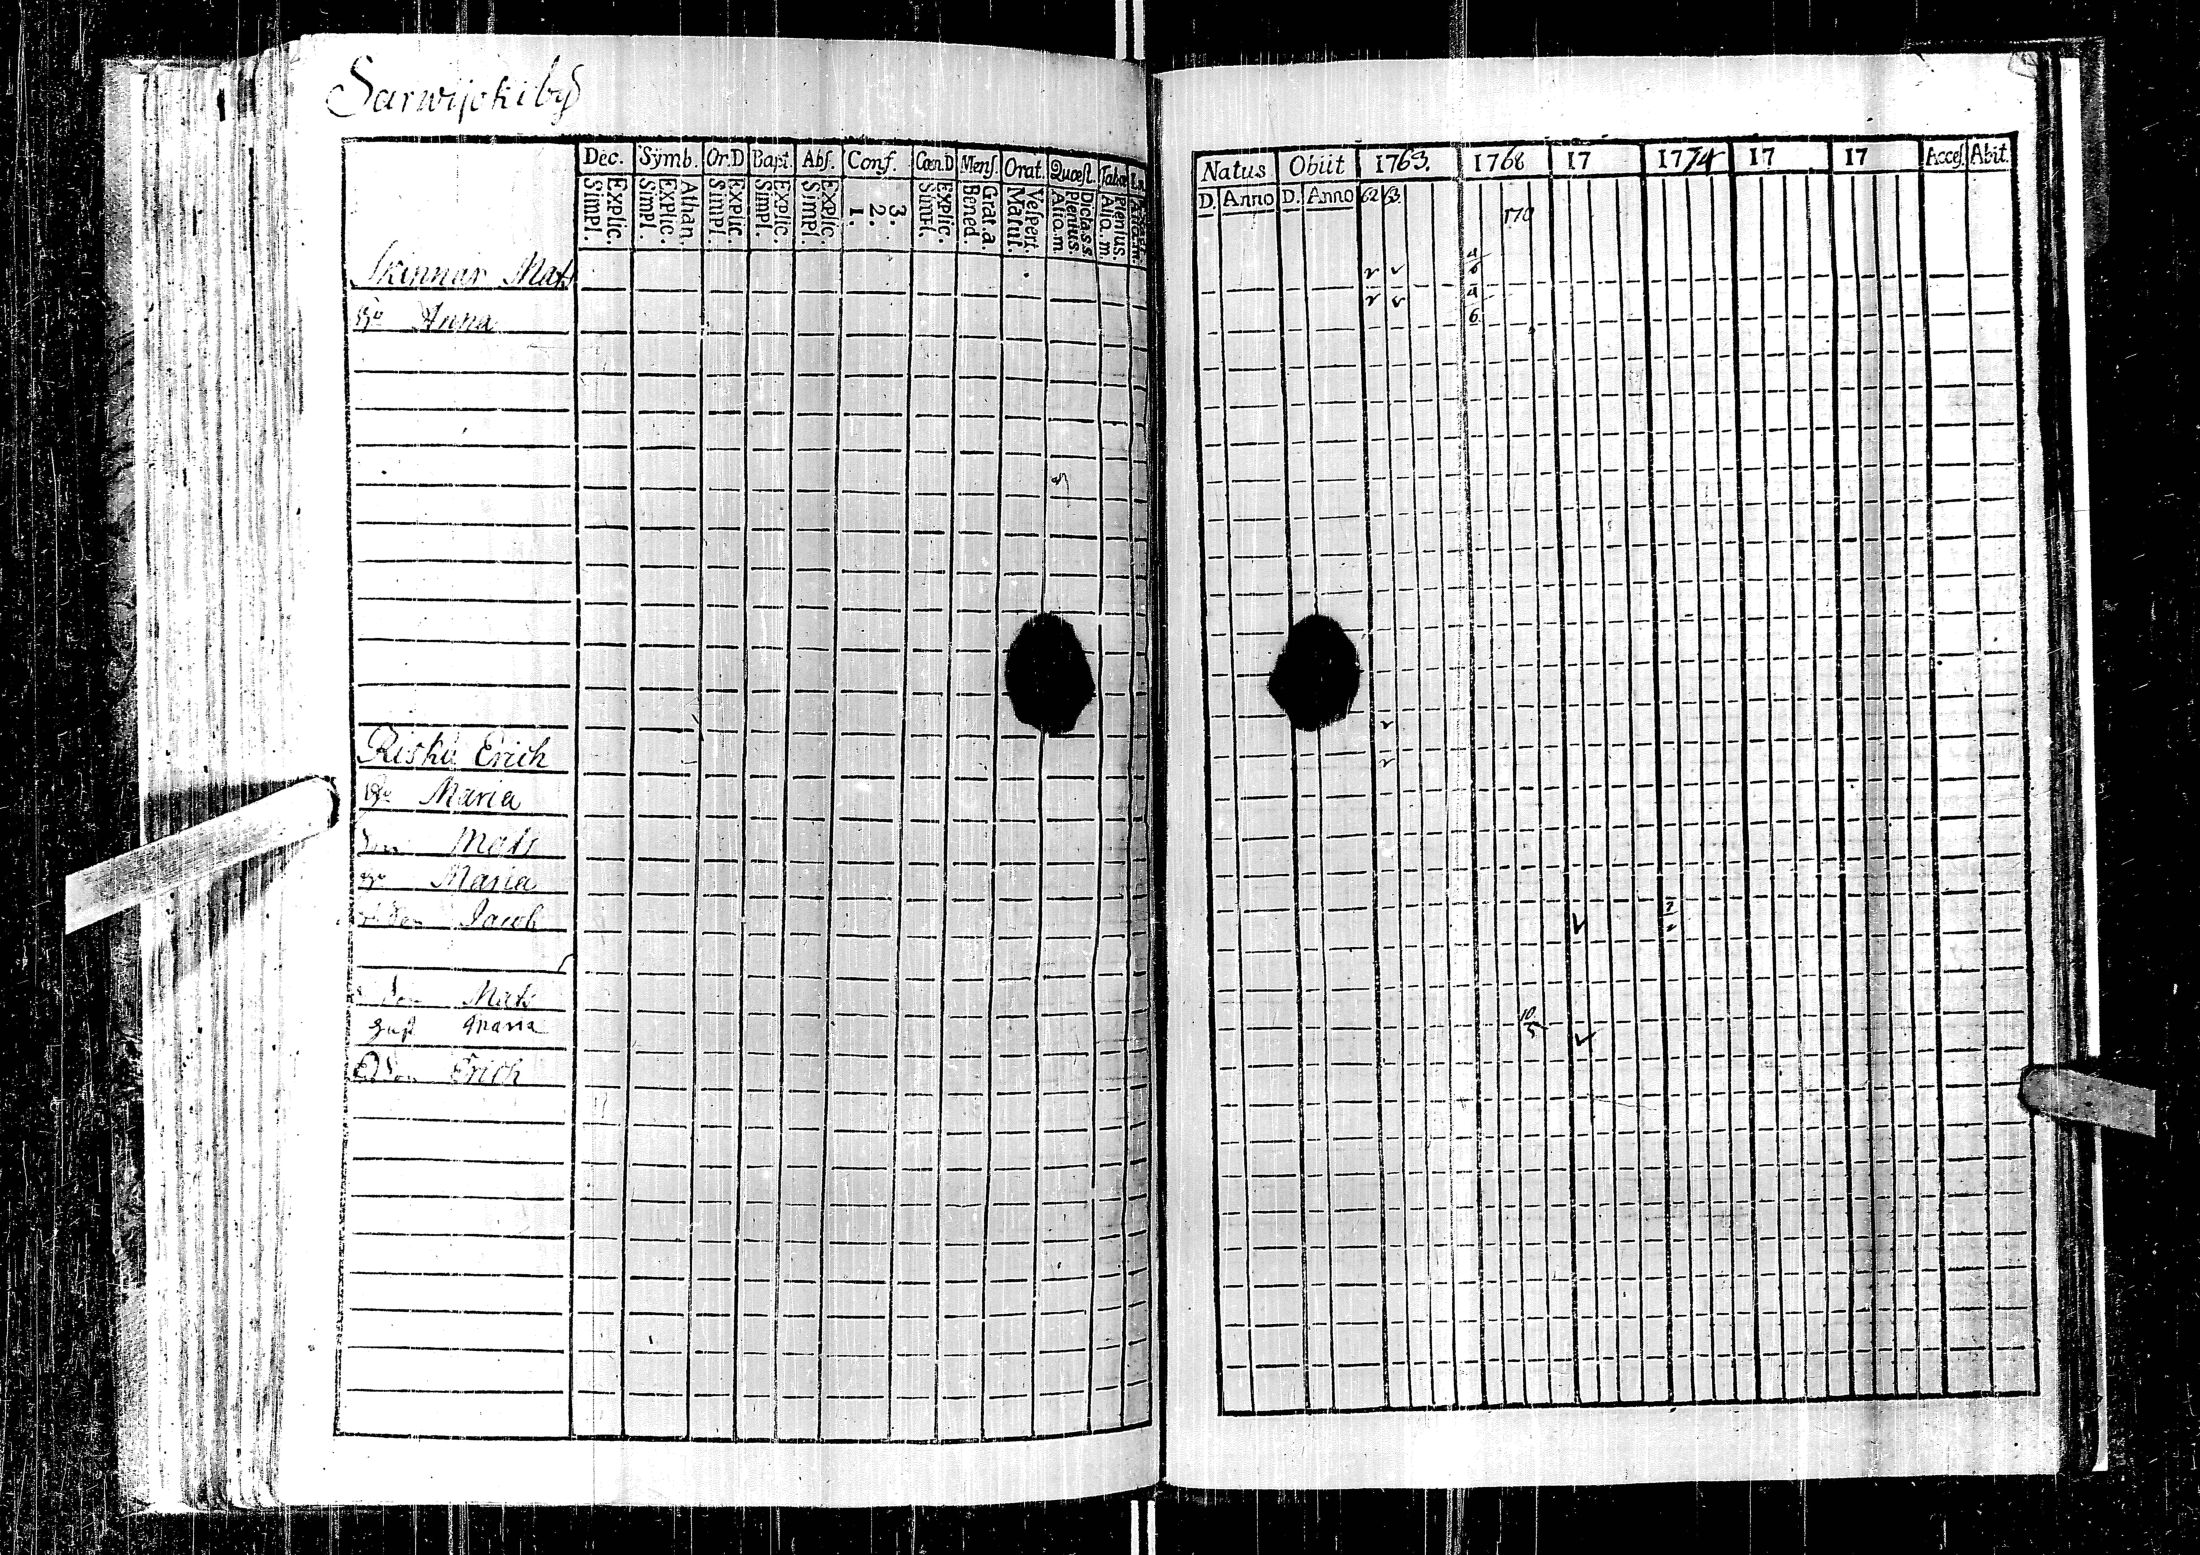 Sarwijokiby
Dec. Symb. Or.D Bapt. Abs. Conf. Cœn.D Mens. Orat. Quæst. Tabæ
Explic. Simpl. Athan. Explic. Simpl. Explic. Simpl. Explic. Simpl. Explic. Simpl. 3. 2. 1. Explic. Simpl. Grat.a. Bened. Vespert. Matut. Diclass. Plenius. Alio.m Plenius Alio.m
Skinnar Mats
Hu Anna
Risku Erich
Hu Maria
Son Mats
Hu Maria
Son Jacob
Son Mats
Hust Maria
Son Erich
Natus Obiit 1763. 1768 17 1774 17 17 Acces. Abit.
D. Anno D. Anno 62 63.
170
4
6
4
6
7
10
5